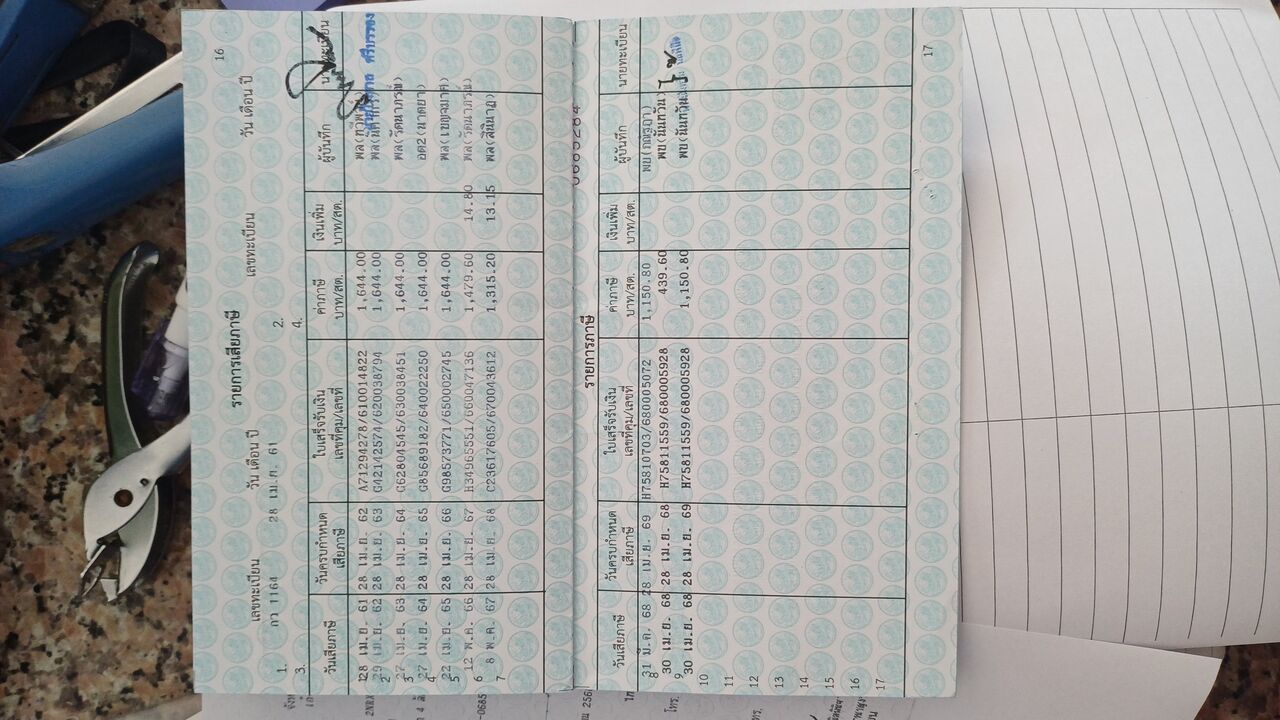 16
รายการเสียภาษี
เลขทะเบียน วัน เดือน ปี เลขทะเบียน วัน เดือน ปี
1. กว 1164 28 เม.ย. 61 2.
3. 4.
วันเสียภาษี วันครบกำหนดเสียภาษี ใบเสร็จรับเงิน เลขที่คุม/เลขที่ ค่าภาษี บาท/สต. เงินเพิ่ม บาท/สต. ผู้บันทึก นายทะเบียน
1 28 เม.ย. 61 28 เม.ย. 62 A71294278/610014822 1,644.00
2 29 เม.ย. 62 28 เม.ย. 63 G42172574/620038794 1,644.00
3 27 เม.ย. 63 28 เม.ย. 64 G62804545/630038451 1,644.00 พล(รัตนาภรณ์)
4 27 เม.ย. 64 28 เม.ย. 65 G85689182/640022250 1,644.00
5 22 เม.ย. 65 28 เม.ย. 66 G98573771/650002745 1,644.00
6 12 พ.ค. 66 28 เม.ย. 67 H34965551/660047136 1,479.60 14.80 พล(รัตนาภรณ์)
7 8 พ.ค. 67 28 เม.ย. 68 C23617605/670043612 1,315.20 13.15
0685284
รายการภาษี
วันเสียภาษี วันครบกำหนดเสียภาษี ใบเสร็จรับเงิน เลขที่คุม/เลขที่ ค่าภาษี บาท/สต. เงินเพิ่ม บาท/สต. ผู้บันทึก นายทะเบียน
8 31 มี.ค. 68 28 เม.ย. 69 H75810703/680005072 1,150.80
30 เม.ย. 68 28 เม.ย. 68 H75811559/680005928 439.60 พข(นันทวัน)
9 30 เม.ย. 68 28 เม.ย. 69 H75811559/680005928 1,150.80 พข(นันทวัน)
10
11
12
13
14
15
16
17
17